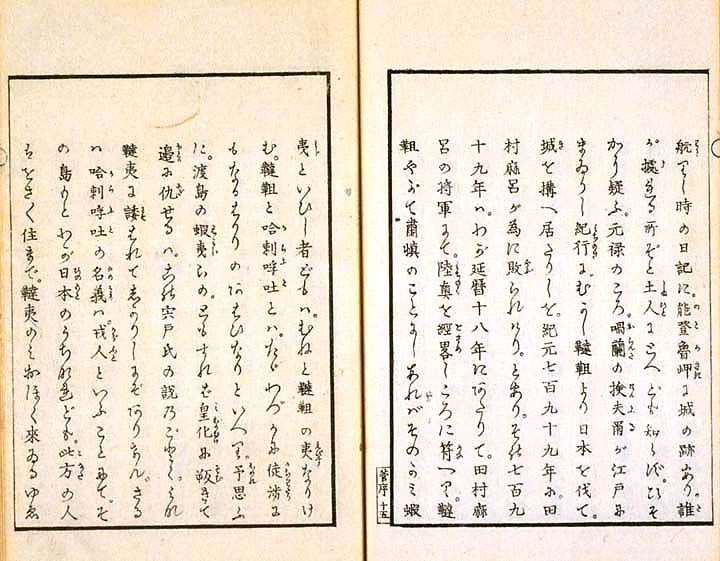 航里し時の日記に。能登魯岬に城の跡あり。誰
が據れる所ぞと土人にとへども知らず。
かり疑ふ。元禄のころ。喎蘭の挨夫爾が江戸に
まゐりし紀行に。むかし韃靼より日本を伐て。
城を搆へ居たりしを。紀元七百九十九年に田
村麻呂が為に敗られけり。とあり。そは七百九
十九年ハ。わが延暦十八年にあたりて。田村麻
呂の将軍にて。陸奥を經畧しころに符へり。韃
靼やがて肅愼のことよしあれバそのかミ蝦
菅序 十五
夷といひし者どもハ。むねと韃靼の夷なりけ
む。韃靼と哈剌哷吐とハ。たゞわづかに徒渉に
もなるばかりのあはひなりといへり。予思ふ
に。渡島の蝦夷らの。ともすれば皇化に叛きて
邉に仇せるハ。かの宍戸氏の説のごとく。これ
韃夷に諉はれてしかりしにぞありなん。さる
ハ哈剌哷吐の名義ハ。戎人といふことにて。そ
の島もとわが日本のうちなれども。此方の人
はをさ〱住まで。韃夷のミおほく來ゐるゆゑ